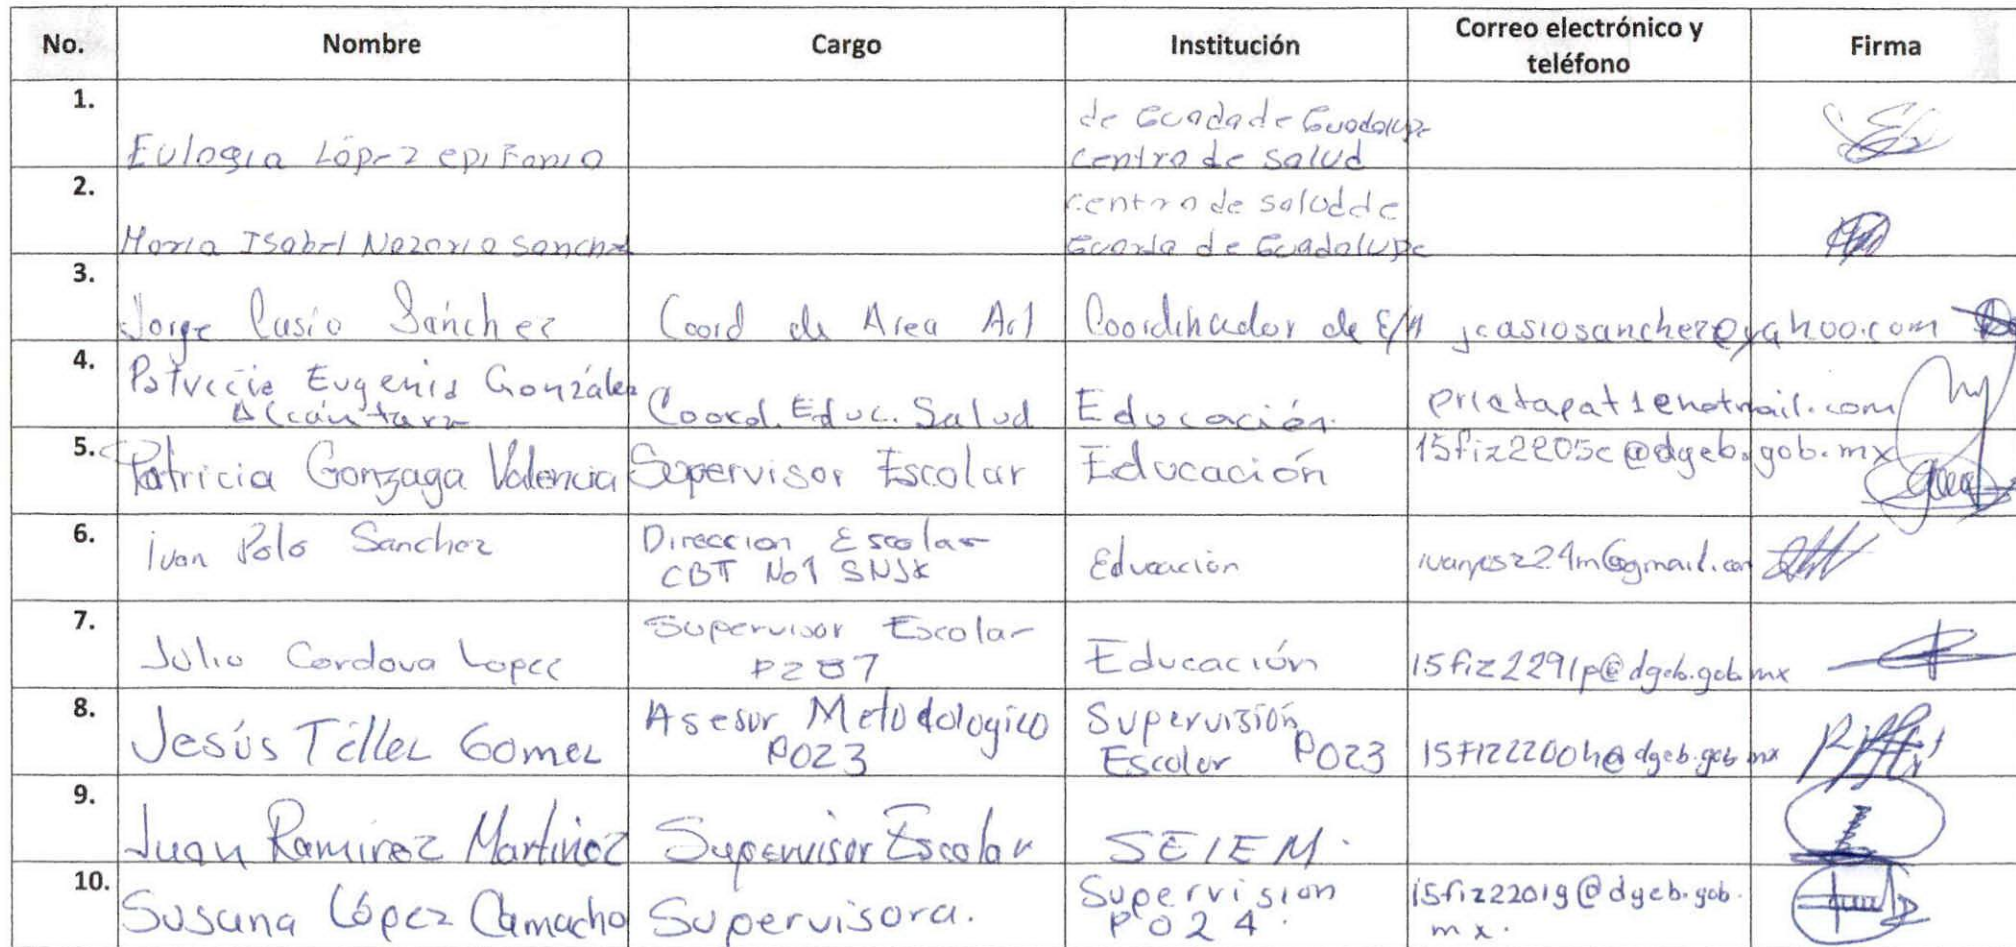 No. Nombre Cargo Institución Correo electrónico y teléfono Firma
1. Eulogia López epifanio de Guadalupe centro de salud
2. Maria Isabel Nazario Sanchez centro de salud de Guarda de Guadalupe
3. Jorge Casio Sánchez Coord de Area Ac1 Coordinador de jcasiosanchez@yahoo.com
4. Patricia Eugenia González Alcántara Coord. Educ. Salud Educación. prietapat1@hotmail.com
5. Patricia Gonzaga Valencia Supervisor Escolar Educación 15fiz2205c@dgeb.gob.mx
6. Ivan Polo Sanchez Direccion Escolar CBT No1 SNJX Educación
7. Julio Cordova Lopez Supervisor Escolar P287 Educación 15fiz2291p@dgeb.gob.mx
8. Jesús Téllez Gomez Asesor Metodologico P023 Supervisión Escolar P023 15fiz2200h@dgeb.gob.mx
9. Juan Ramirez Martinez Supervisor Escolar SEIEM.
10. Susana López Camacho Supervisora. Supervision P024. 15fiz2201g@dgeb.gob.mx.